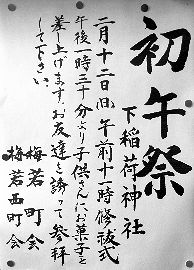 初午祭
下稲荷神社
二月十二日(日)、午前十一時修祓式
午後一時三十分より子供さんにお菓子を
差し上げます。お友達と誘って参拝
して下さい。
梅若町会
梅若西町会